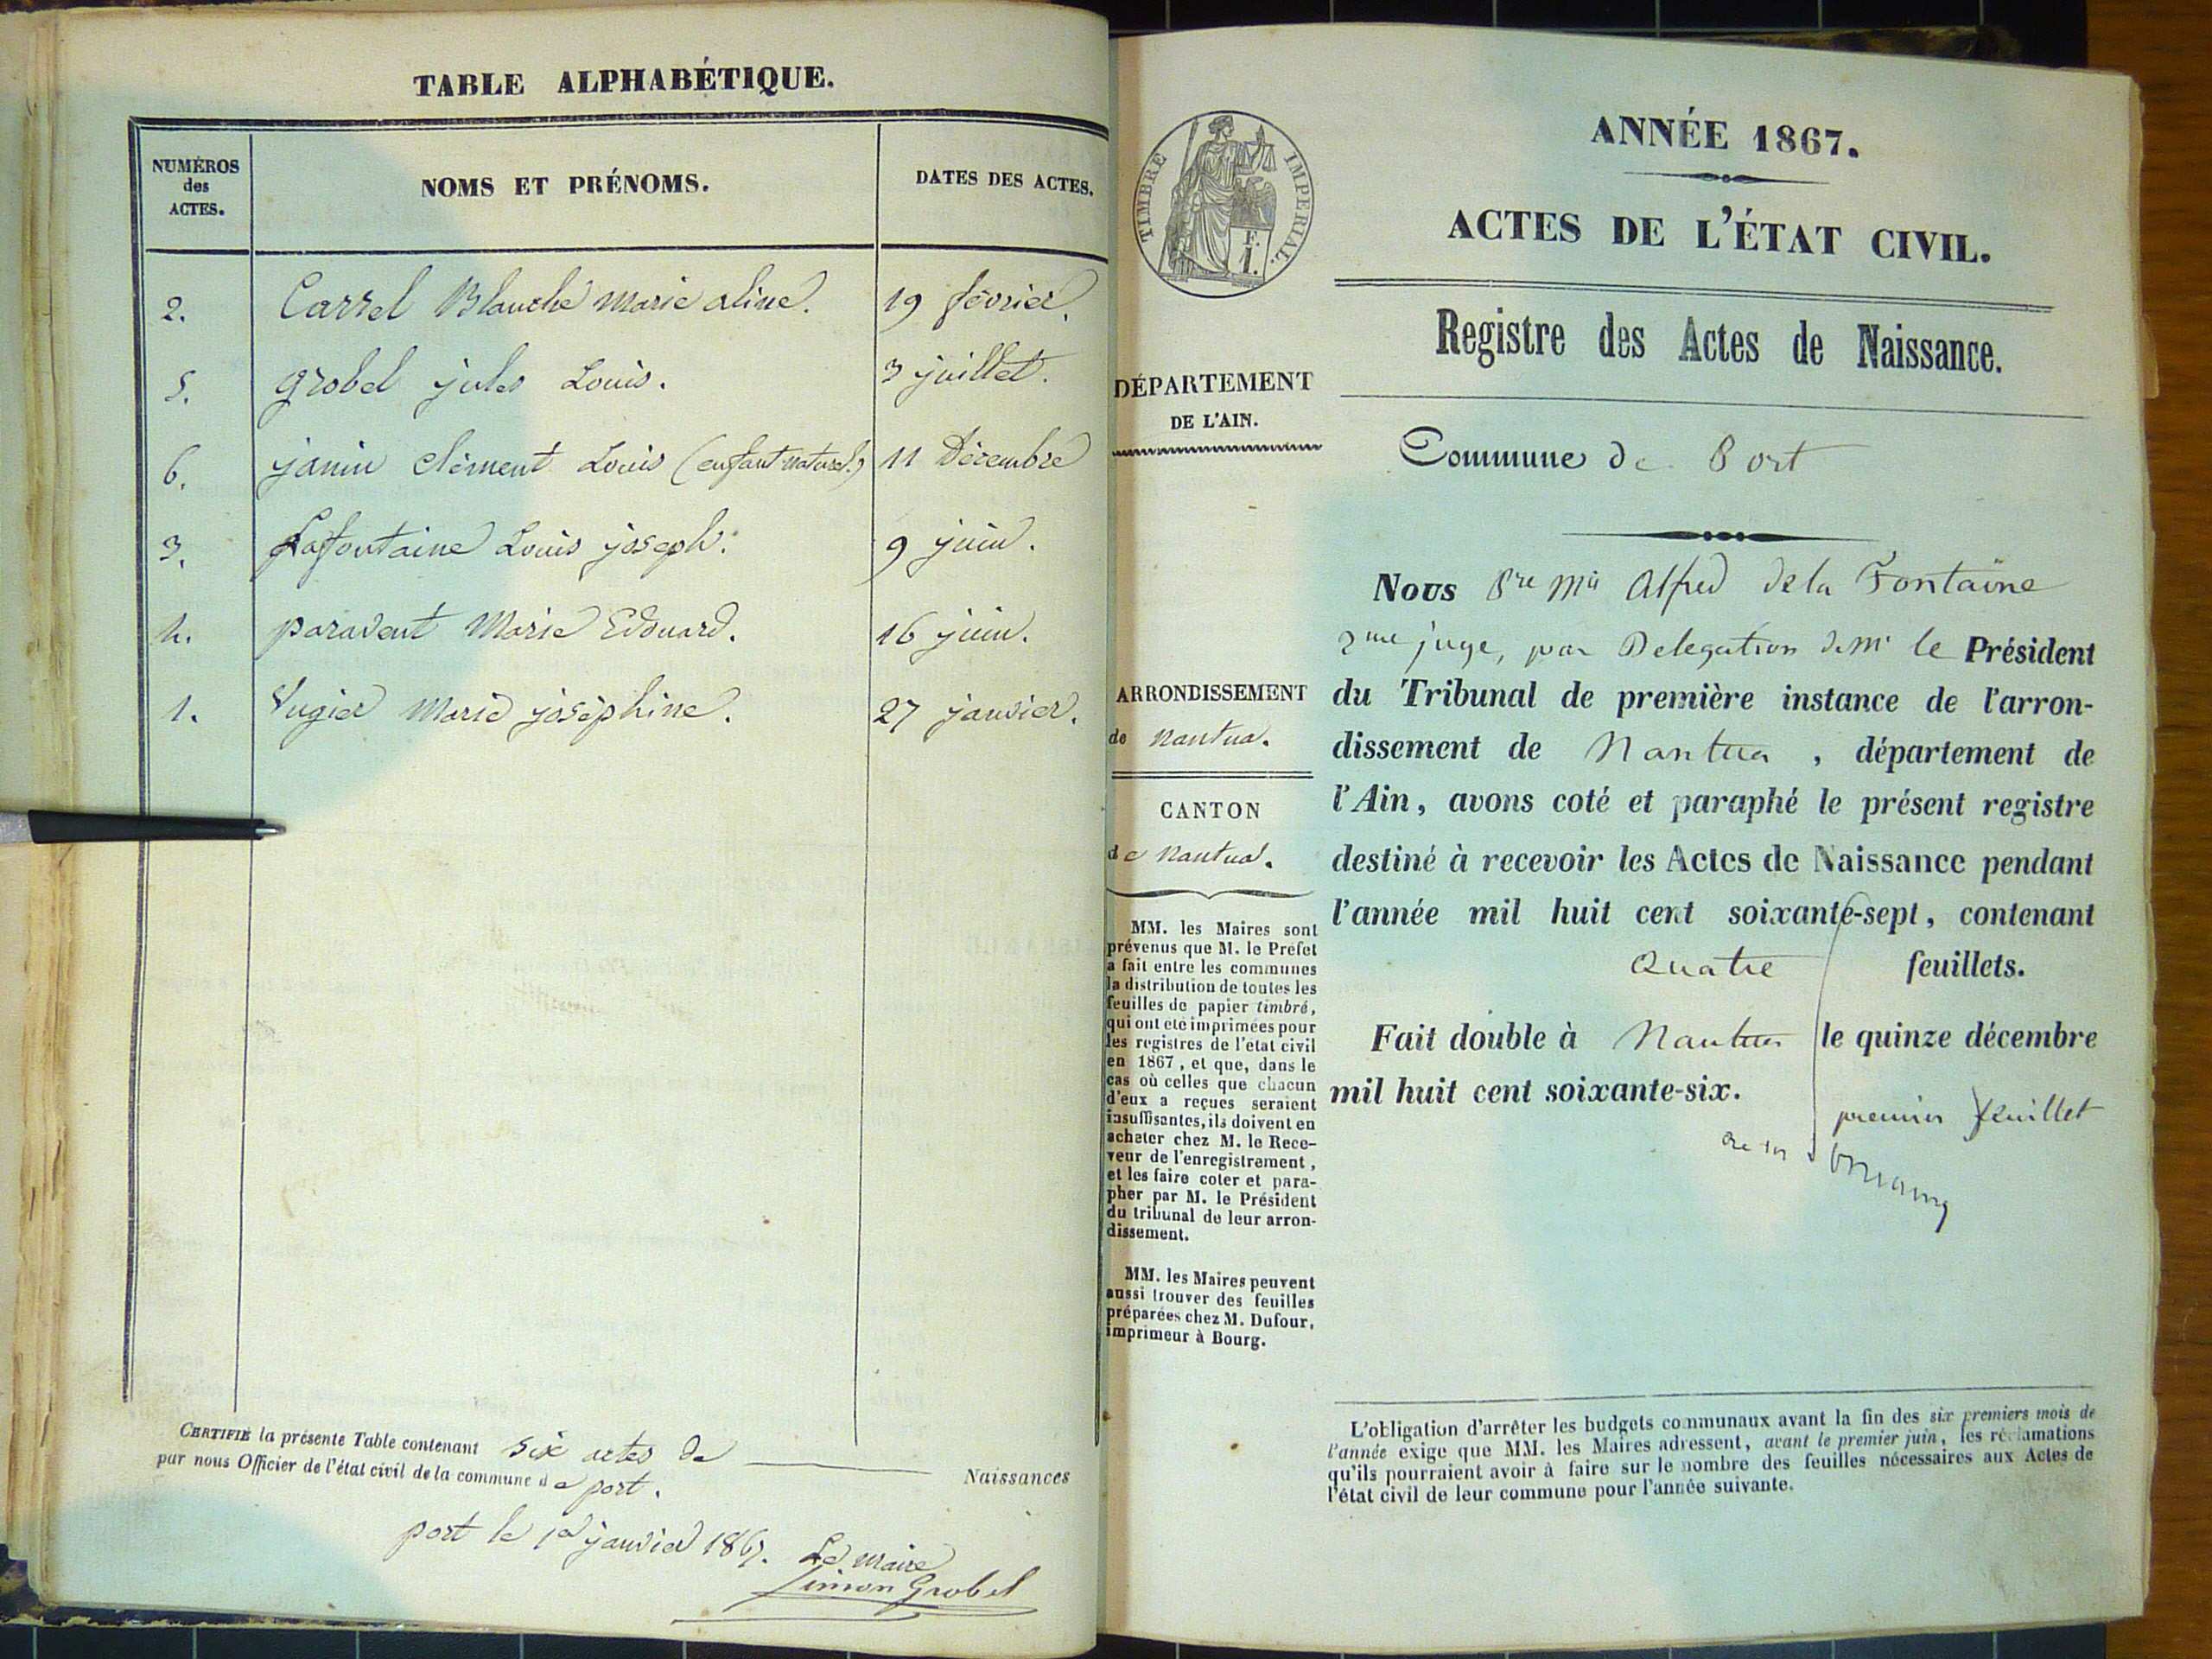 TABLE ALPHABÉTIQUE.
NUMÉROS
des
ACTES.
NOMS ET PRÉNOMS.
DATES DES ACTES.
2. Carrel Blanche Marie aline. 19 février.
5. grobel jules Louis. 3 juillet.
6. janin clément Louis (enfant naturel) 11 Décembre
3. Lafontaine Louis joseph. 9 juin.
4. paravent Marie Edouard. 16 juin.
1. Marie joséphine. 27 janvier.
CERTIFIÉ la présente Table contenant six actes de Naissances
par nous Officier de l'état civil de la commune de port.
port le 1er janvier 1867. Le maire
Simon Grobel
TIMBRE IMPÉRIAL.
ANNÉE 1867.
ACTES DE L'ÉTAT CIVIL.
Registre des Actes de Naissance.
DÉPARTEMENT
DE L'AIN.
Commune de Port
ARRONDISSEMENT
de Nantua.
CANTON
de Nantua.
MM. les Maires sont
prévenus que M. le Préfet
a fait entre les communes
la distribution de toutes les
feuilles de papier timbré,
qui ont été imprimées pour
les registres de l'état civil
en 1867, et que, dans le
cas où celles que chacun
d'eux a reçues seraient
insuffisantes, ils doivent en
acheter chez M. le Rece-
veur de l'enregistrement,
et les faire coter et para-
pher par M. le Président
du tribunal de leur arron-
dissement.
MM. les Maires peuvent
aussi trouver des feuilles
préparées chez M. Dufour,
imprimeur à Bourg.
Nous Pre Mie Alfred de la Fontaine
2me juge, par Delegation de Mr le Président
du Tribunal de première instance de l'arron-
dissement de Nantua, département de
l'Ain, avons coté et paraphé le présent registre
destiné à recevoir les Actes de Naissance pendant
l'année mil huit cent soixante-sept, contenant
quatre feuillets.
Fait double à Nantua le quinze décembre
mil huit cent soixante-six.
premier feuillet
L'obligation d'arrêter les budgets communaux avant la fin des six premiers mois de
l'année exige que MM. les Maires adressent, avant le premier juin, les réclamations
qu'ils pourraient avoir à faire sur le nombre des feuilles nécessaires aux Actes de
l'état civil de leur commune pour l'année suivante.